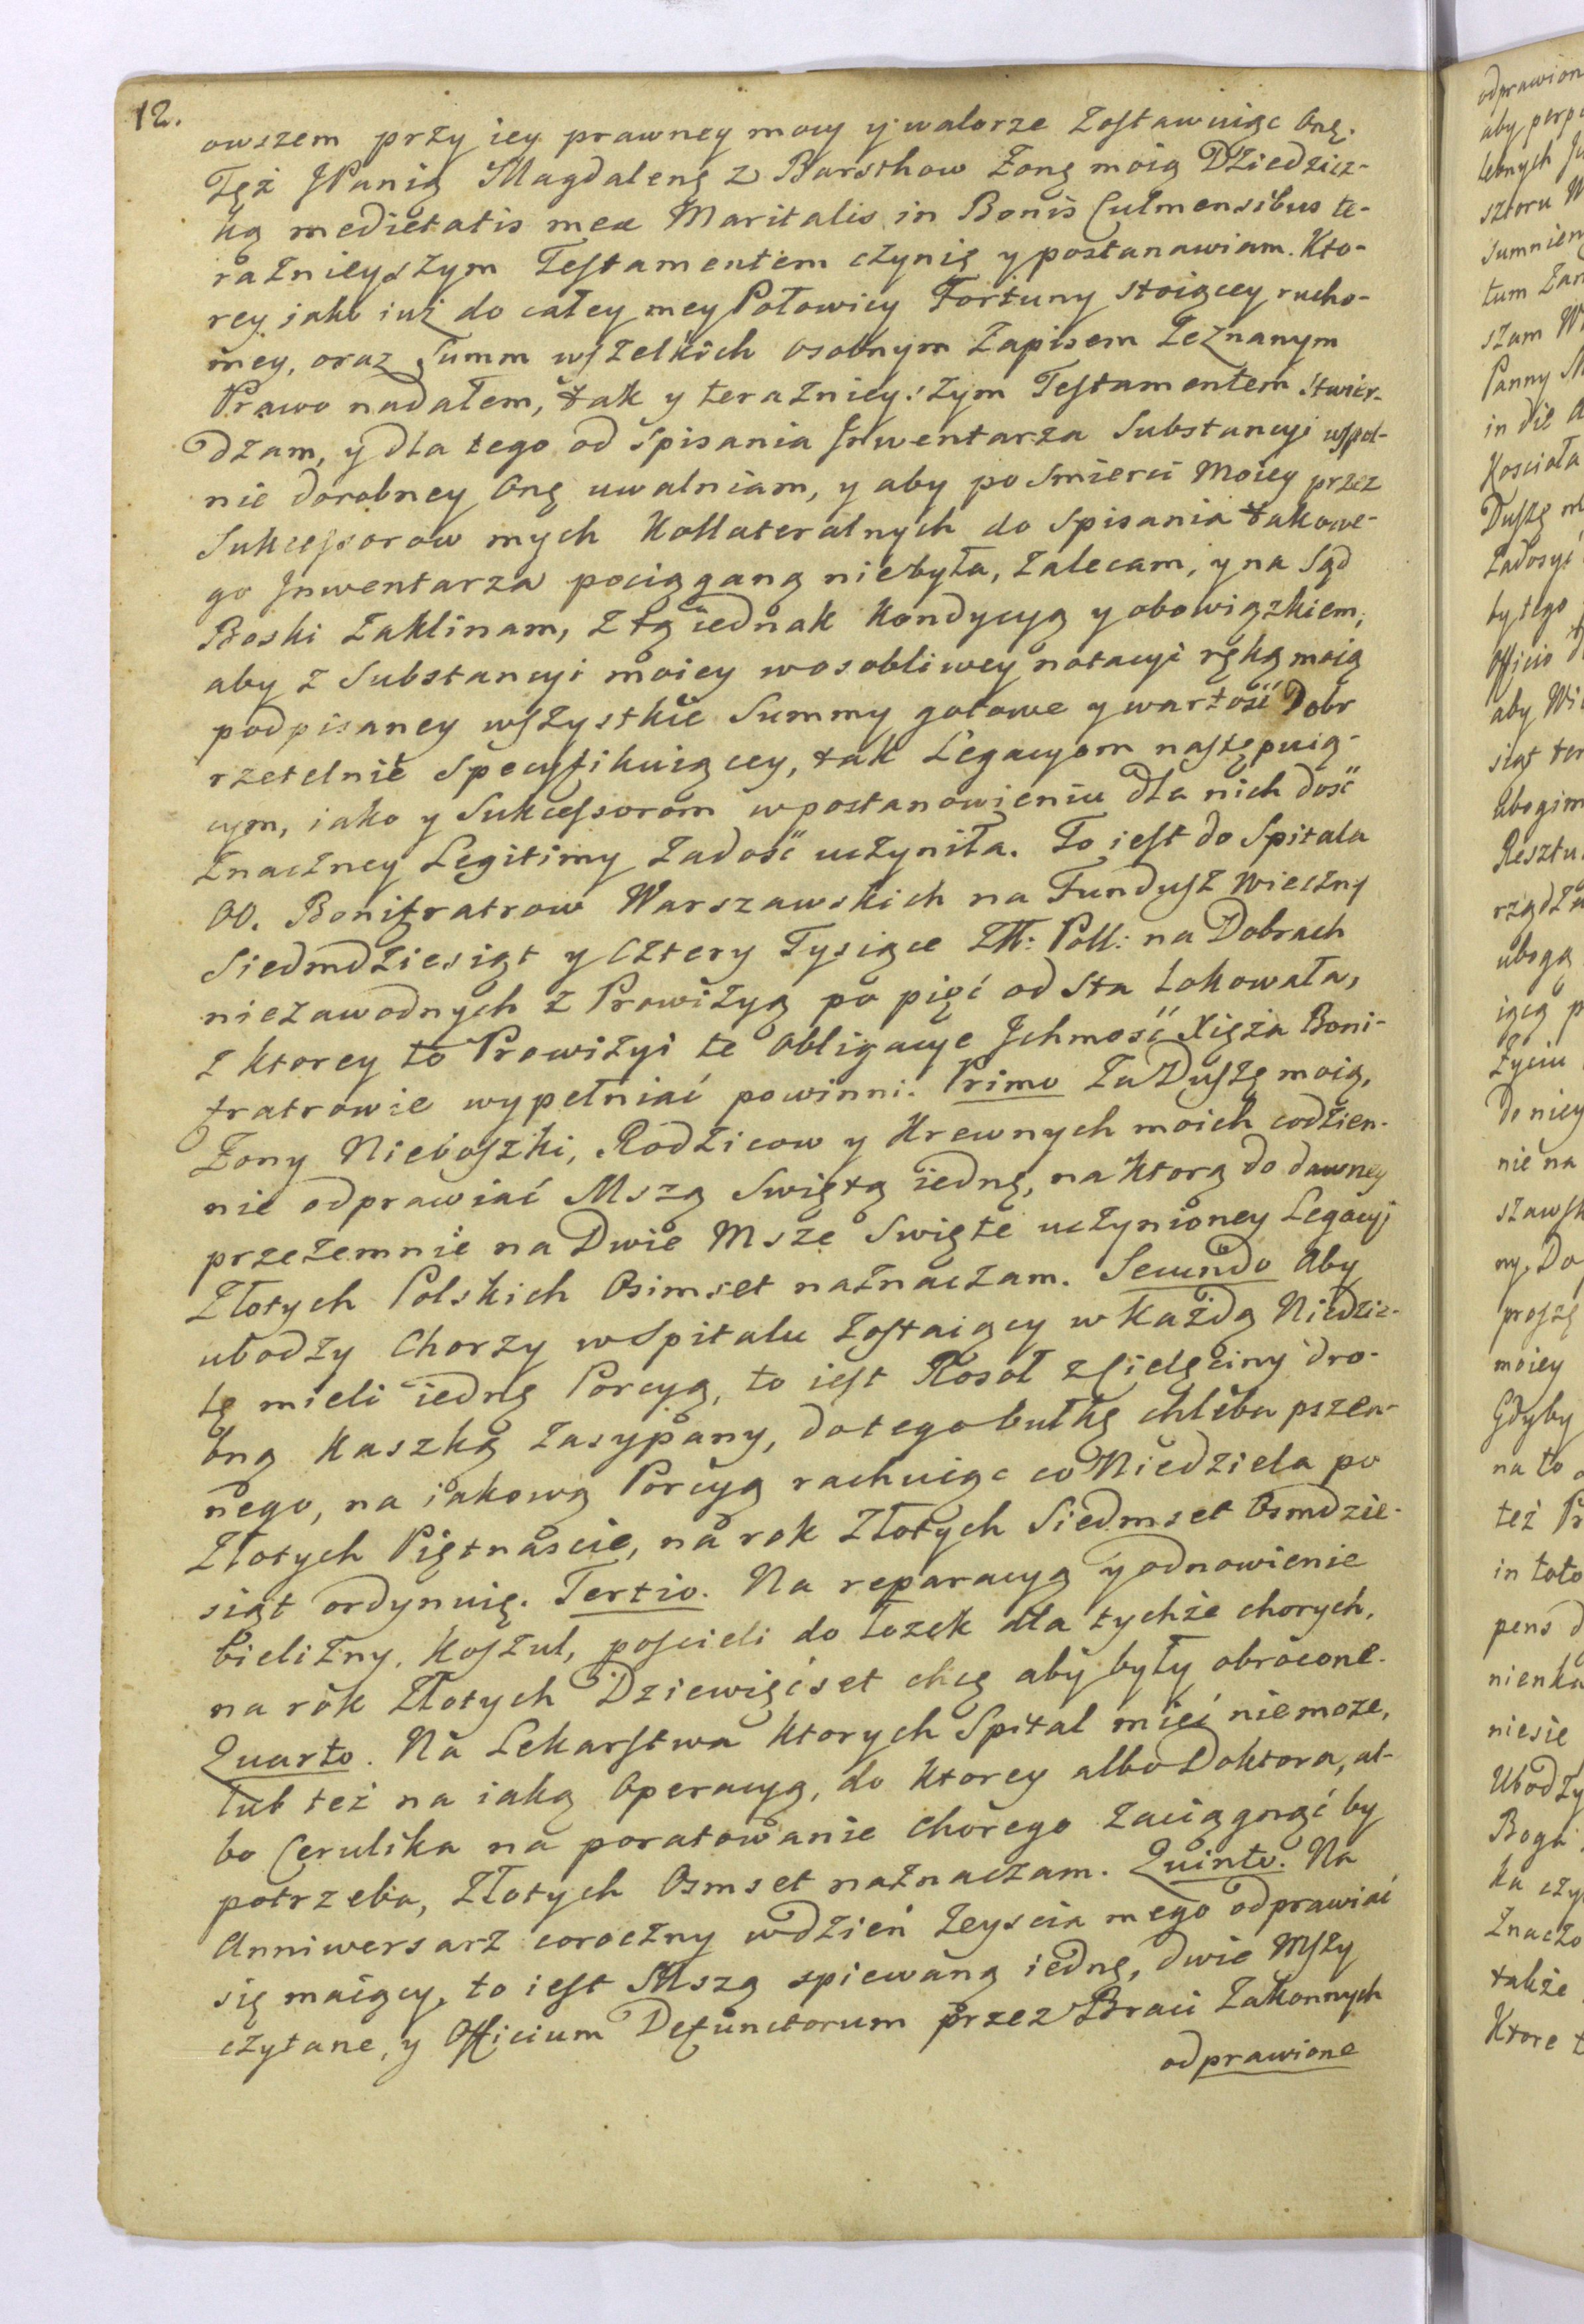 12.
owszem przy iey prawney mocy y walorze zostawuiąc Onę.
Tęż JPanią Magdalenę z Barsthow Zonę moią Dziedzicz-
ką medietatis mea Maritalis in Bonis Culmensibus te-
raznieyszym Testamentem czynię y postanawiam. Kto-
rey jako iuż do całey mey Połowicy Fortuny stoiącey rucho-
mey, oraz Summ wszelkich osobnym Zapisem Zeznanym
Prawo nadałem, tak y teraznieyszym Testamentem stwier-
dzam, y dla tego od Spisania Jnwentarza Substancyi wspol-
nie dorobney Onę uwalniam, y aby po Smierci Moiey przez
Sukcessorow mych Kollateralnych do Spisania takowe-
go Jnwentarza pociągganą niebyła, zalecam, y na Sąd
Boski Zaklinam, z tą iednak Kondycyą y obowiązkiem,
aby z Substancyi moiey wosobliwey notacyi ręką moią
podpisaney wszystkie Summy gotowe y wartość Dobr
rzetelnie Specyfikuiącey, tak Legacyom następuią-
cym, iako y Sukcessorom wpostanowieniu dla nich dość
znaczney Legitimy zadość uczyniła. To iest do Spitala
OO. Bonifratrow Warszawskich na Fundusz Wieczny
Siedmdziesiąt y Cztery Tysiące Złł: Poll: na Dobrach
niezawodnych z Prowizyą po pięć od Sta Lokowała,
z ktorey to Prowizyi te Obligacye Jchmość Xięża Boni-
fratrowie wypełniać powinni. Primo Za Duszę moią,
Zony Nieboszki, Rodzicow y Krewnych moich codzien-
nie odprawiać Mszą Swiętą iednę, na ktorą do dawney
przezemnie na Dwie Msze Swięte uczynioney Legacyi
Złotych Polskich Osimset naznaczam. Secundo Aby
ubodzy Chorzy wSpitalu zostaiący w każdą Niedzie-
lę mieli iednę Porcyą, to iest Rosoł z Cielęciny dro-
bną Kaszką zasypany, do tego bułkę chleba pszen-
nego, na iakową Porcyą rachuiąc co Niedziela po
Złotych Piętnascie, na rok Złotych Siedmset Osmdzie-
siąt ordynuię. Tertio. Na reparacyą y odnowienie
bielizny, Koszul, poscieli do łozek dla tychże chorych,
na rok Złotych Dziewięćset chcę aby były obrocone.
Quarto. Na Lekarstwa ktorych Spital mieć niemoze,
lub też na iaką Operacyą, do ktorey albo Doktora, al-
bo Cerulika na poratowanie chorego zaciągnąć by
potrzeba, Złotych Osmset naznaczam. Quinto. Na
Anniwersarz coroczny wdzień Zeyscia mego odprawiać
się maiący, to iest Mszą spiewaną iednę, dwie Mszy
czytane, y Officium Defunctorum przez Braci Zakonnych
odprawione
odprawion
aby perp
lebnych
sztoru W
Sumnien
tum Zan
szam W
Panny M
in die
Koscioła
Duszę
Zadosyć
by tego
Officio
aby Wi
siąt
ubogim
Resztu
rządza
ubogą
iącą p
Zyciu
do niey
nie na
szawsk
ny, Do
proszę
moiey
Gdyby
na to
też Pr
in toto
pens
nienka
niesie
Ubodzy
Boga
ka czy
Znaczo
także
Ktore t